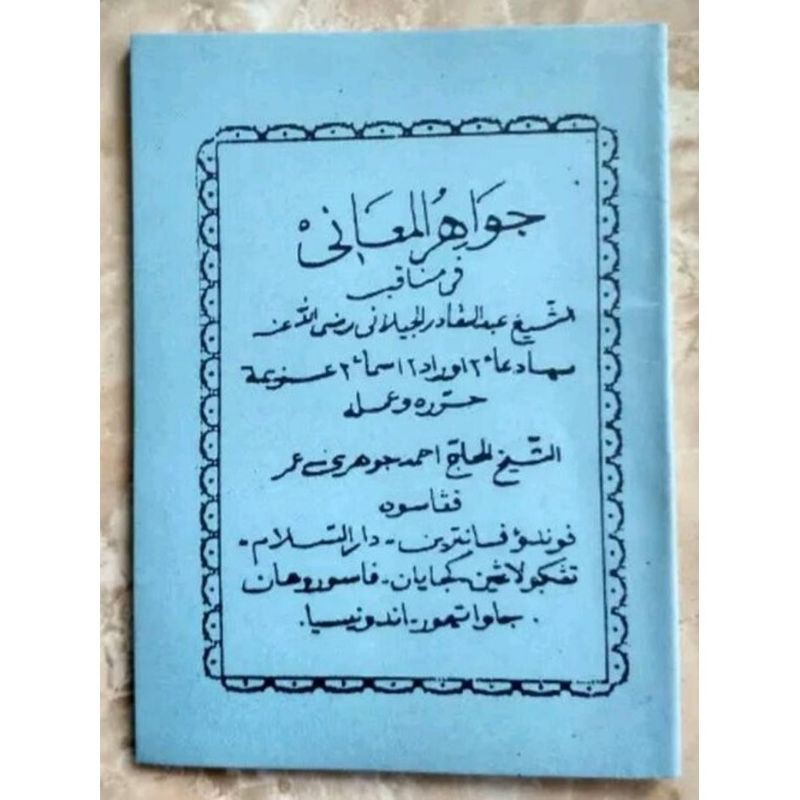 جَوَاهِرُ المَعَانِى
فى مناقب
الشّيخ عبد القادر الجيلانى رضى الله عنه
سهادعاء٢ اوراد٢ اسماء٢ عزيمة
حرّره وعمله
الشّيخ الحاج احمد جوهرى عمر
فڠاسوه
فوندوؤ فسانترين - دار السّلام -
تڠݢولاڠين كجايان - فاسوروهان
. جاوا تيمور - اندونيسيا .